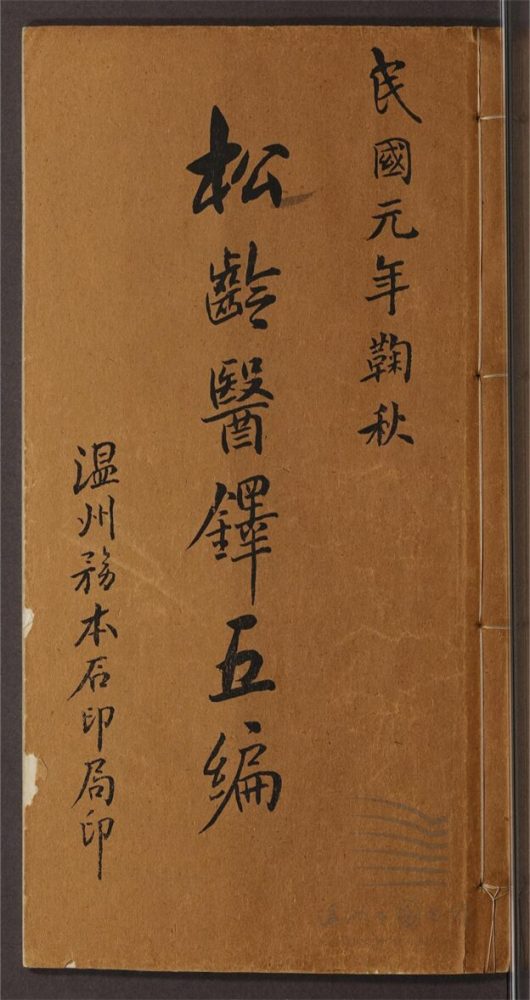 民國元年鞠秋
松齡醫鐸五編
温州务本石印局印